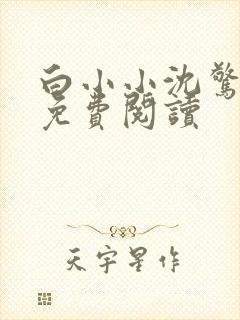 白小小沈驚
免費閱讀
天宇星作